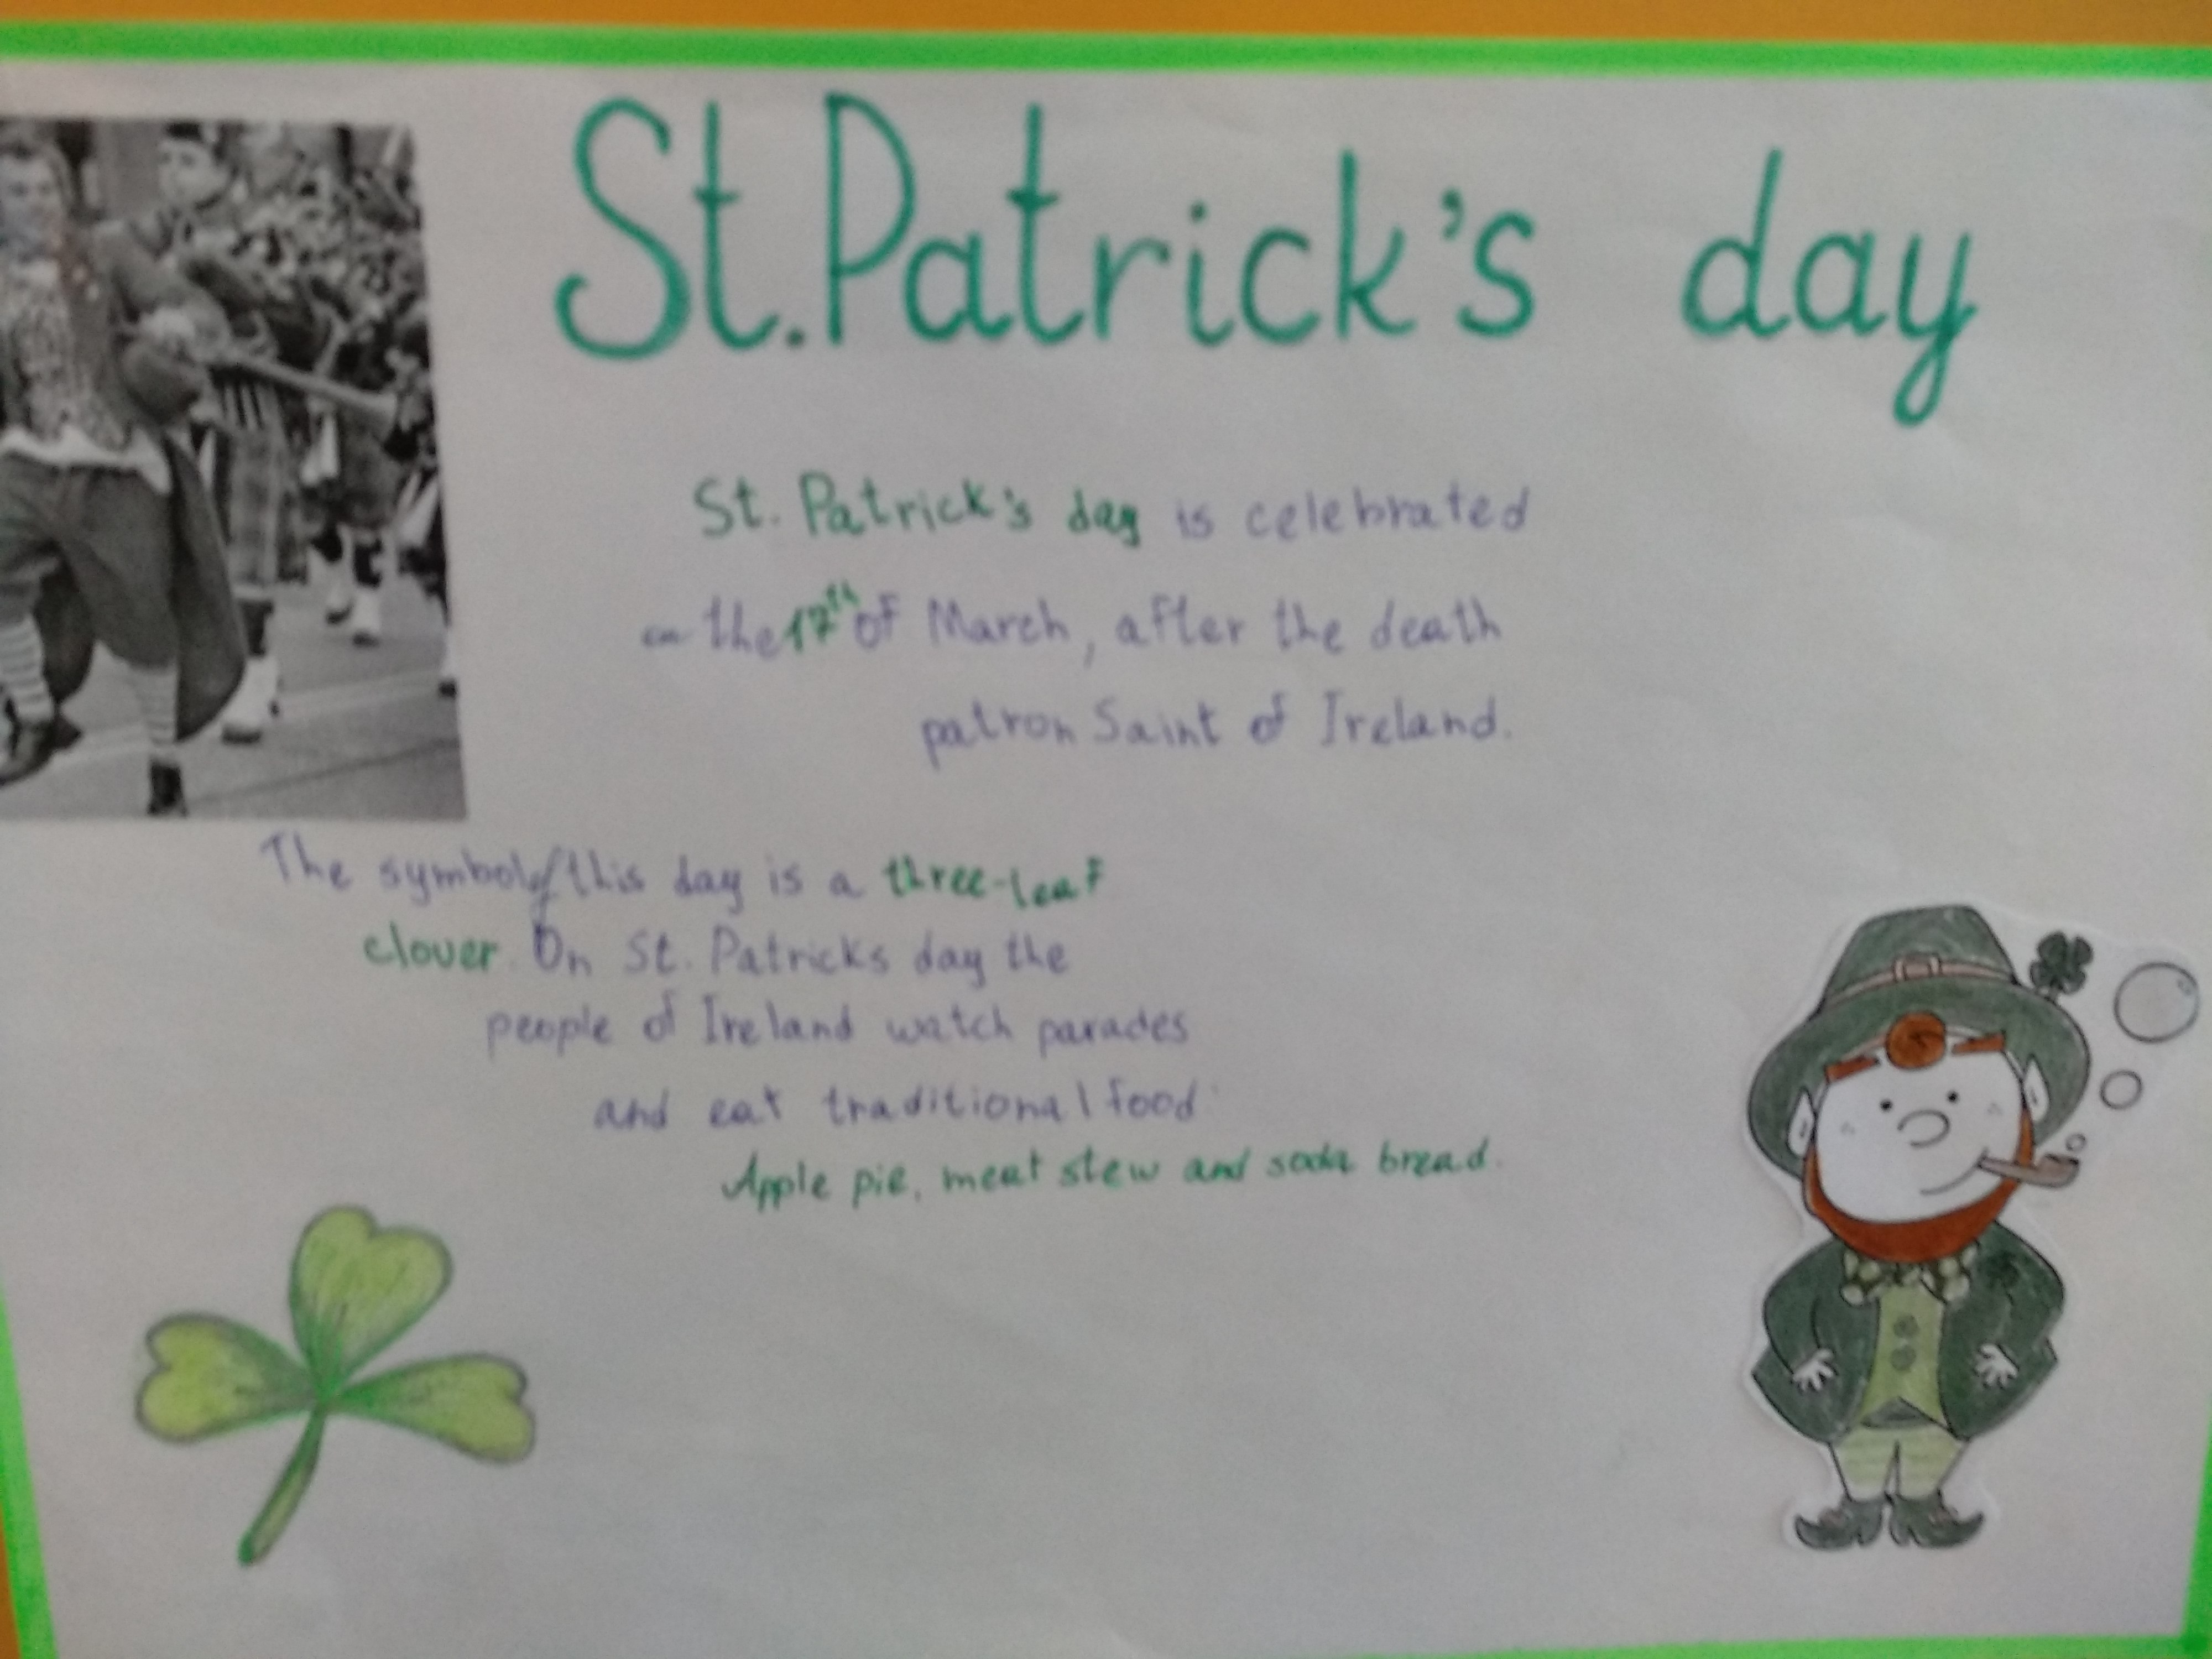 St. Patrick's day
St. Patrick's day is celebrated
on the 17th of March, after the death
patron Saint of Ireland.
The symbol of this day is a three-leaf
clover. On St. Patricks day the
people of Ireland watch parades
and eat traditional food
Apple pie, meat stew and soda bread.